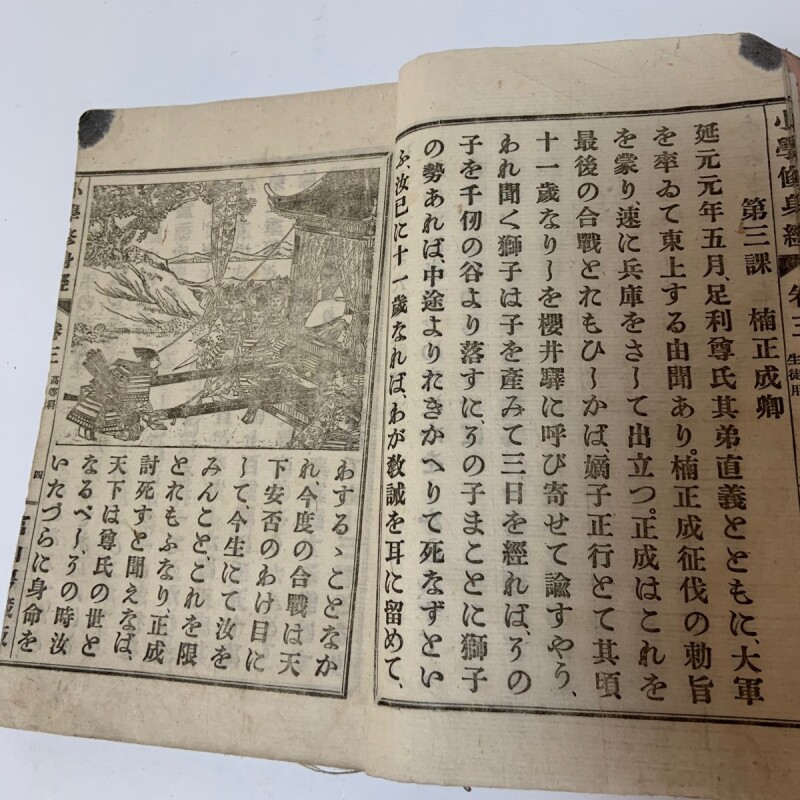 小學修身經
卷三
生徒用
第三課 楠正成卿
延元元年五月、足利尊氏其弟直義とともに、大軍
を率ゐて東上する由聞あり。楠正成征伐の勅旨
を蒙り、速に兵庫をさして出立つ。正成はこれを
最後の合戰とおもひしかば、嫡子正行とて其頃
十一歲なりしを櫻井驛に呼び寄せて諭すやう、
われ聞く獅子は子を產みて三日を經れば、その
子を千仞の谷より落すに、その子まことに獅子
の勢あれば、中途よりおきかへりて死なずとい
ふ、汝已に十一歲なれば、わが敎誡を耳に留めて、
わするゝことなか
れ、今度の合戰は天
下安否のわけ目に
して、今生にて汝を
みんこと、これを限
とおもふなり、正成
討死すと聞えなば、
天下は尊氏の世と
なるべし、その時汝
いたづらに身命を
小學修身經
卷三
高等科
四